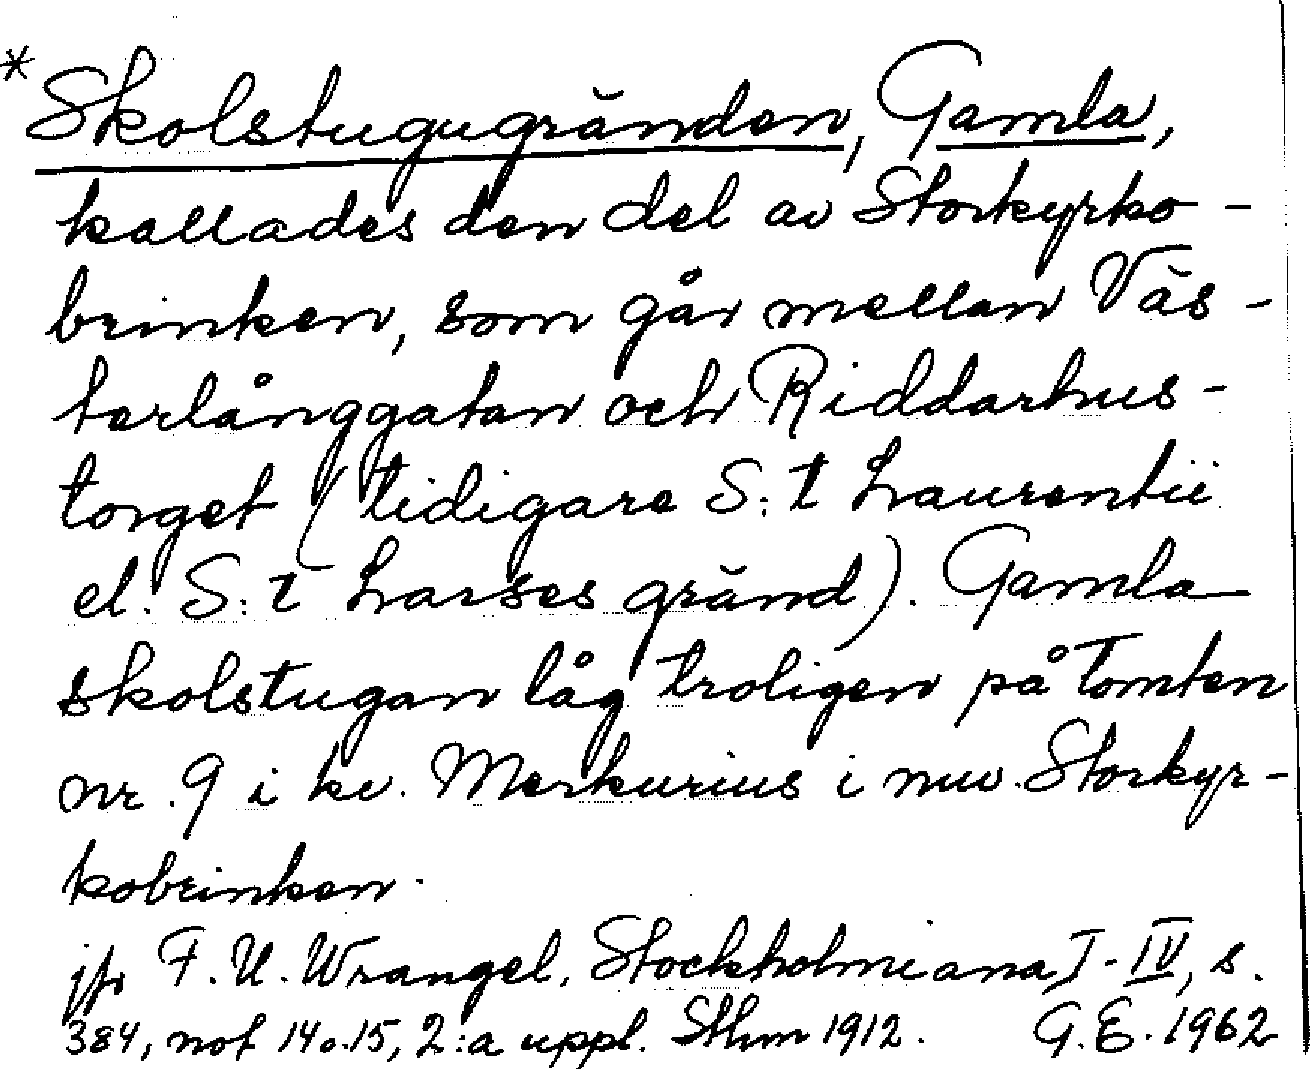 * Skolstugugränden, Gamla,
kallades den del av Storkyrko-
brinken, som går mellan Väs-
terlånggatan och Riddarhus-
torget (tidigare S:t Laurentii
el. S:t Larses gränd). Gamla
skolstugan låg troligen på tomten
nr. 9 i kv. Merkurius i nuv. Storkyr-
kobrinken.
jfr F. U. Wrangel, Stockholmiana I-IV, s.
384, not 14 o. 15, 2:a uppl. Sthm 1912. G. E. 1962